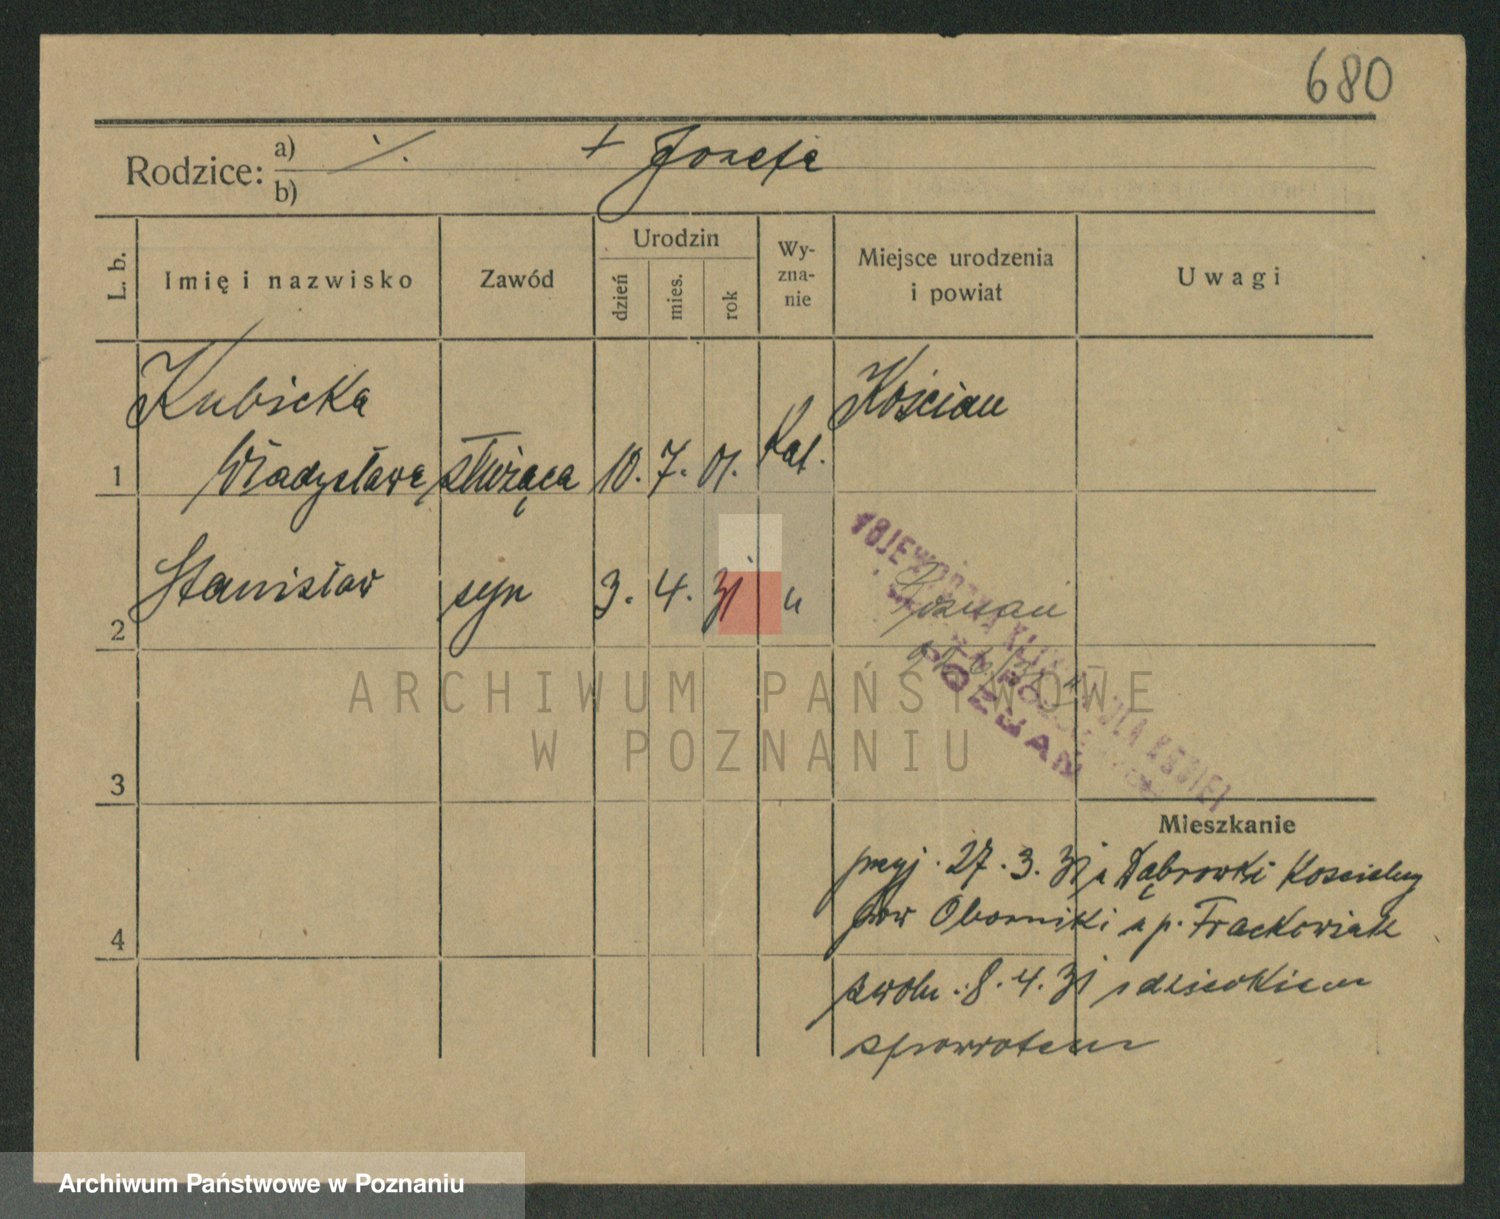 680
Rodzice: a) ·/. + Józefa
b)
L. b. Imię i nazwisko Zawód Urodzin dzień mies. rok Wy-zna-nie Miejsce urodzenia i powiat Uwagi
Kubicka Kościan
1 Władysława służąca 10. 7. 01. Kat.
2 Stanisław syn 3. 4. 31 " Poznań
WOJEWÓDZKA KLINIKA DLA KOBIET
POZNAŃ
ARCHIWUM PAŃSTWOWE
W POZNANIU
3
Mieszkanie
przyj. 27. 3. 31 z Dąbrowki Koscielny
4 pow Oborniki u p. Frackowiak
zwoln. 8. 4. 31 z dzieckiem
spowrotem
Archiwum Państwowe w Poznaniu